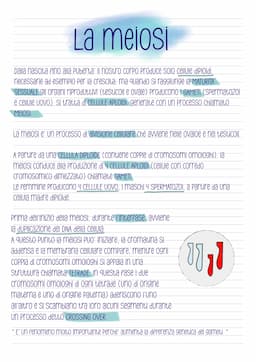 LA MEIOSI
Dalla nascita fino alla pubertà il nostro corpo produce solo cellule diploidi,
necessarie ad esempio per la crescita, ma quando si raggiunge la MATURITÀ
SESSUALE gli organi riproduttivi (testicoli e ovaie) producono I GAMETI (spermatozoi
e cellule uovo). Si tratta di CELLULE APLOIDI, generate con un processo chiamato
MEIOSI.
La meiosi e' un processo di divisione cellulare che avviene nelle ovaie e nei testicoli.
A partire da una CELLULA DIPLOIDE ( contiene coppie di cromosomi omologhi), la
meiosi conduce alla produzione di 4 CELLULE APLOIDI (cellule con corredo
cromosomico dimezzato) chiamate GAMETI.
Le femmine producono 4 CELLULE UOVO, i maschi 4 SPERMATOZOI, a partire da una
cellula madre diploide.
Prima dell'inizio della meiosi, durante l'interfase, avviene
la duplicazione del DNA della cellula.
A questo punto la meiosi puo' iniziare, la cromatina si
addensa e la membrana cellulare compare, mentre ogni
coppia di cromosomi omologhi si appaia in una
struttura chiamata TETRADE. In questa fase i due
cromosomi omologhi di ogni tetrade (uno di origine
materna e uno di origine paterna) aderiscono l'uno
all'altro e si scambiano tra loro alcuni segmenti durante
un processo detto CROSSING OVER.
* E' un fenomeno molto importante perche' aumenta la differenza genetica dei gameti. *